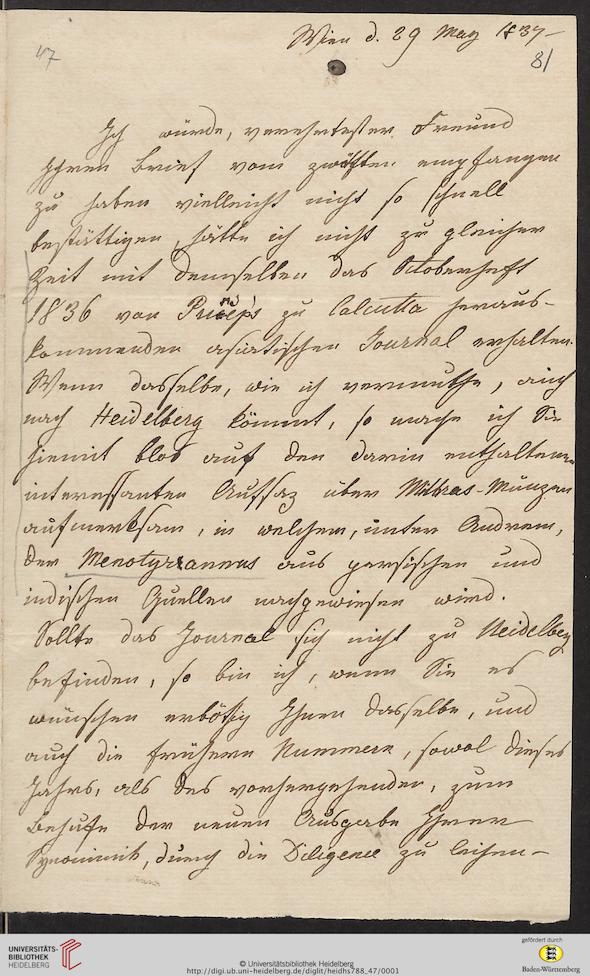 Wien d. 29 May 1837 –
47
81
Ich würde, verehrtester Freund
Ihren Brief vom zwölften empfangen
zu haben vielleicht nicht so schnell
bestättigen, hätte ich nicht zu gleicher
Zeit mit demselben das Octoberheft
1836 von Prinsep's zu Calcutta heraus-
kommenden asiatischen Journal erhalten.
Wenn dasselbe, wie ich vermuthe, auch
nach Heidelberg kömmt, so mache ich Sie
hiemit blos auf den darin enthaltenen
interessanten Aufsaz über Mithras-Münzen
aufmerksam, in welchem, unter Andrem,
der Menotyrannus aus persischen und
indischen Quellen nachgewiesen wird.
Sollte das Journal sich nicht zu Heidelberg
befinden, so bin ich, wenn Sie es
wünschen erbötig Ihnen dasselbe, und
auch die frühern Nummern, sowol dieses
Jahrs, als des vorhergehenden, zum
Behufe der neuen Ausgabe Ihrer
Symbolik, durch die Diligence zu leihen –
UNIVERSITÄTS-
BIBLIOTHEK
HEIDELBERG
© Universitätsbibliothek Heidelberg
http://digi.ub.uni-heidelberg.de/diglit/heidhs788_47/0001
gefördert durch
Baden-Württemberg